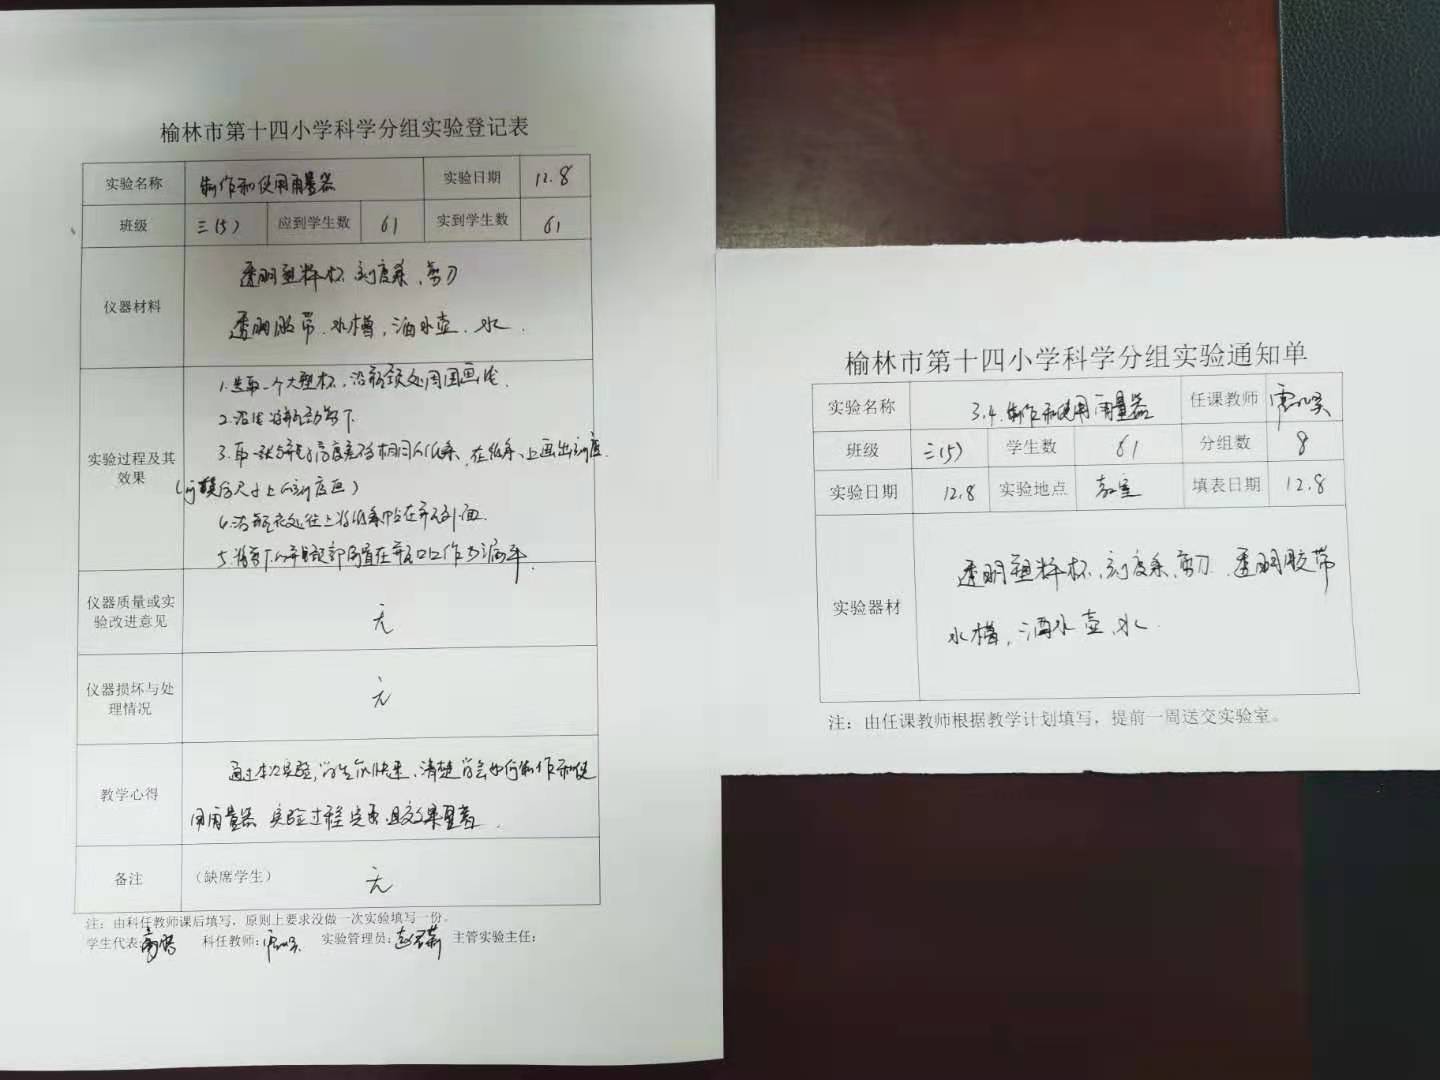 榆林市第十四小学科学分组实验登记表
实验名称 制作和使用雨量器 实验日期 12.8
班级 三(5) 应到学生数 61 实到学生数 61
仪器材料
透明塑料杯、刻度条、剪刀
透明胶带、水槽、洒水壶、水.
实验过程及其
效果
1.选取一个大塑料杯,沿瓶颈处周围画线.
2.沿线将瓶颈剪下.
3.取一张与瓶子高度差不多相同的纸条,在纸条上画出刻度.
(可模仿尺子上的刻度画)
4.沿瓶底处往上将纸条贴在瓶外面.
5.将剪下的瓶颈部倒置在瓶口作为漏斗.
仪器质量或实
验改进意见
无
仪器损坏与处
理情况
无
教学心得
通过本次实验,学生 清楚学会如何制作和使
用雨量器 实验过程完整 且效果显著.
备注 (缺席学生) 无
注:由科任教师课后填写,原则上要求没做一次实验填写一份。
学生代表: 科任教师: 实验管理员: 主管实验主任:
榆林市第十四小学科学分组实验通知单
实验名称 3.4.制作和使用雨量器 任课教师
班级 三(5) 学生数 61 分组数 8
实验日期 12.8 实验地点 教室 填表日期 12.8
实验器材
透明塑料杯、刻度条、剪刀、透明胶带
水槽,洒水壶、水.
注:由任课教师根据教学计划填写,提前一周送交实验室。